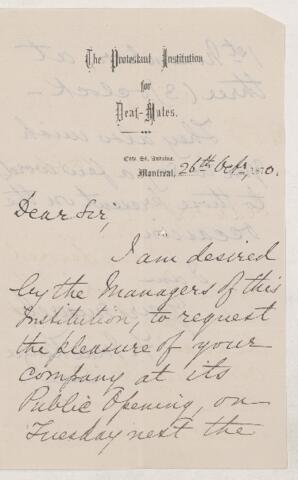 The Protestant Institution
for
Deaf-Mutes.
Cote St. Antoine.
Montreal, 26th Octr, 1870.
Dear Sir,
I am desired
by the Managers of this
Institution, to request
the pleasure of your
company at its
Public Opening, on
Tuesday next the